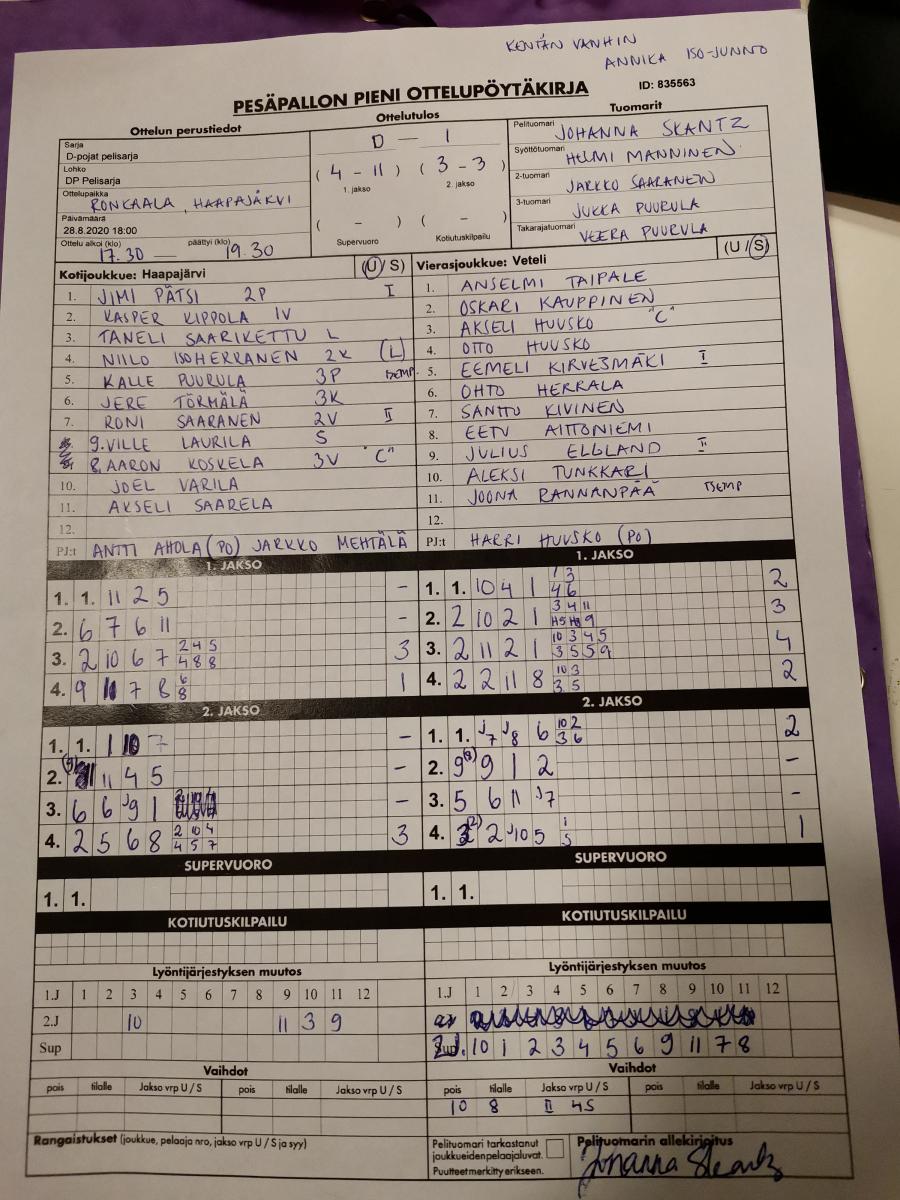 KENTÄN VANHIN
ANNIKA ISO-JUNNO
PESÄPALLON PIENI OTTELUPÖYTÄKIRJA
ID: 835563
Ottelun perustiedot
Sarja
D-pojat pelisarja
Lohko
DP Pelisarja
Ottelupaikka
RONKAALA, HAAPAJÄRVI
Päivämäärä
28.8.2020 18:00
Ottelu alkoi (klo) 17.30 — päättyi (klo) 19.30
Ottelutulos
0 — 1
( 4 - 11 ) ( 3 - 3 )
1. jakso 2. jakso
( - ) ( - )
Supervuoro Kotiutuskilpailu
Tuomarit
Pelituomari JOHANNA SKANTZ
Syöttötuomari HELMI MANNINEN
2-tuomari JARKKO SAARANEN
3-tuomari JUKKA PUURULA
Takarajatuomari VEERA PUURULA
Kotijoukkue: Haapajärvi (U / S)
1. JIMI PÄTSI 2P I
2. KASPER KIPPOLA 1V
3. TANELI SAARIKETTU L
4. NIILO ISOHERRANEN 2K (L)
5. KALLE PUURULA 3P TSEMP.
6. JERE TÖRMÄLÄ 3K
7. RONI SAARANEN 2V II
9. VILLE LAURILA S
8. AARON KOSKELA 3V "C"
10. JOEL VARILA
11. AKSELI SAARELA
12.
PJ:t ANTTI AHOLA (PO) JARKKO MEHTÄLÄ
Vierasjoukkue: Veteli (U / S)
1. ANSELMI TAIPALE
2. OSKARI KAUPPINEN
3. AKSELI HUUSKO "C"
4. OTTO HUUSKO
5. EEMELI KIRVESMÄKI I
6. OHTO HERRALA
7. SANTTU KIVINEN
8. EETU AITTONIEMI
9. JULIUS ELGLAND II
10. ALEKSI TUNKKARI
11. JOONA RANNANPÄÄ TSEMP
12.
PJ:t HARRI HUUSKO (PO)
1. JAKSO
1. 1. 11 2 5 -
2. 6 7 6 11 -
3. 2 10 6 7 2 4 5 3
4 8 8
4. 9 7 8 6 1
8
2. JAKSO
1. 1. 1 10 7 -
2. 11 4 5 -
3. 6 6 J9 1 -
4. 2 5 6 8 2 10 4 3
4 5 7
SUPERVUORO
1. 1.
KOTIUTUSKILPAILU
Lyöntijärjestyksen muutos
1.J 1 2 3 4 5 6 7 8 9 10 11 12
2.J 10 11 3 9
Sup
Vaihdot
pois tilalle Jakso vrp U / S pois tilalle Jakso vrp U / S
1. JAKSO
1. 1. 10 4 1 1 3 2
4 6
2. 2 10 2 1 3 4 11 3
3. 2 11 2 1 10 3 4 5 4
3 5 5 9
4. 2 2 11 8 10 3 2
3 5
2. JAKSO
1. 1. J7 J8 6 10 2 2
3 6
2. 9 9 1 2 -
3. 5 6 11 J7 -
4. (2) 2 J10 5 1 1
5
SUPERVUORO
1. 1.
KOTIUTUSKILPAILU
Lyöntijärjestyksen muutos
1.J 1 2 3 4 5 6 7 8 9 10 11 12
2J. 10 1 2 3 4 5 6 9 11 7 8
Vaihdot
pois tilalle Jakso vrp U / S pois tilalle Jakso vrp U / S
10 8 II 4S
Rangaistukset (joukkue, pelaaja nro, jakso vrp U / S ja syy)
Pelituomari tarkastanut
joukkueiden pelaajaluvat.
Puutteet merkitty erikseen.
Pelituomarin allekirjoitus
Johanna Skantz